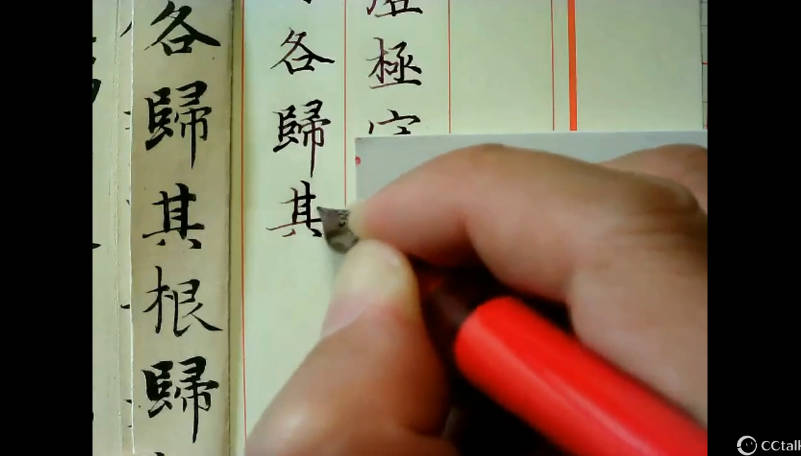 極
各歸其
各歸其根歸
CCtalk